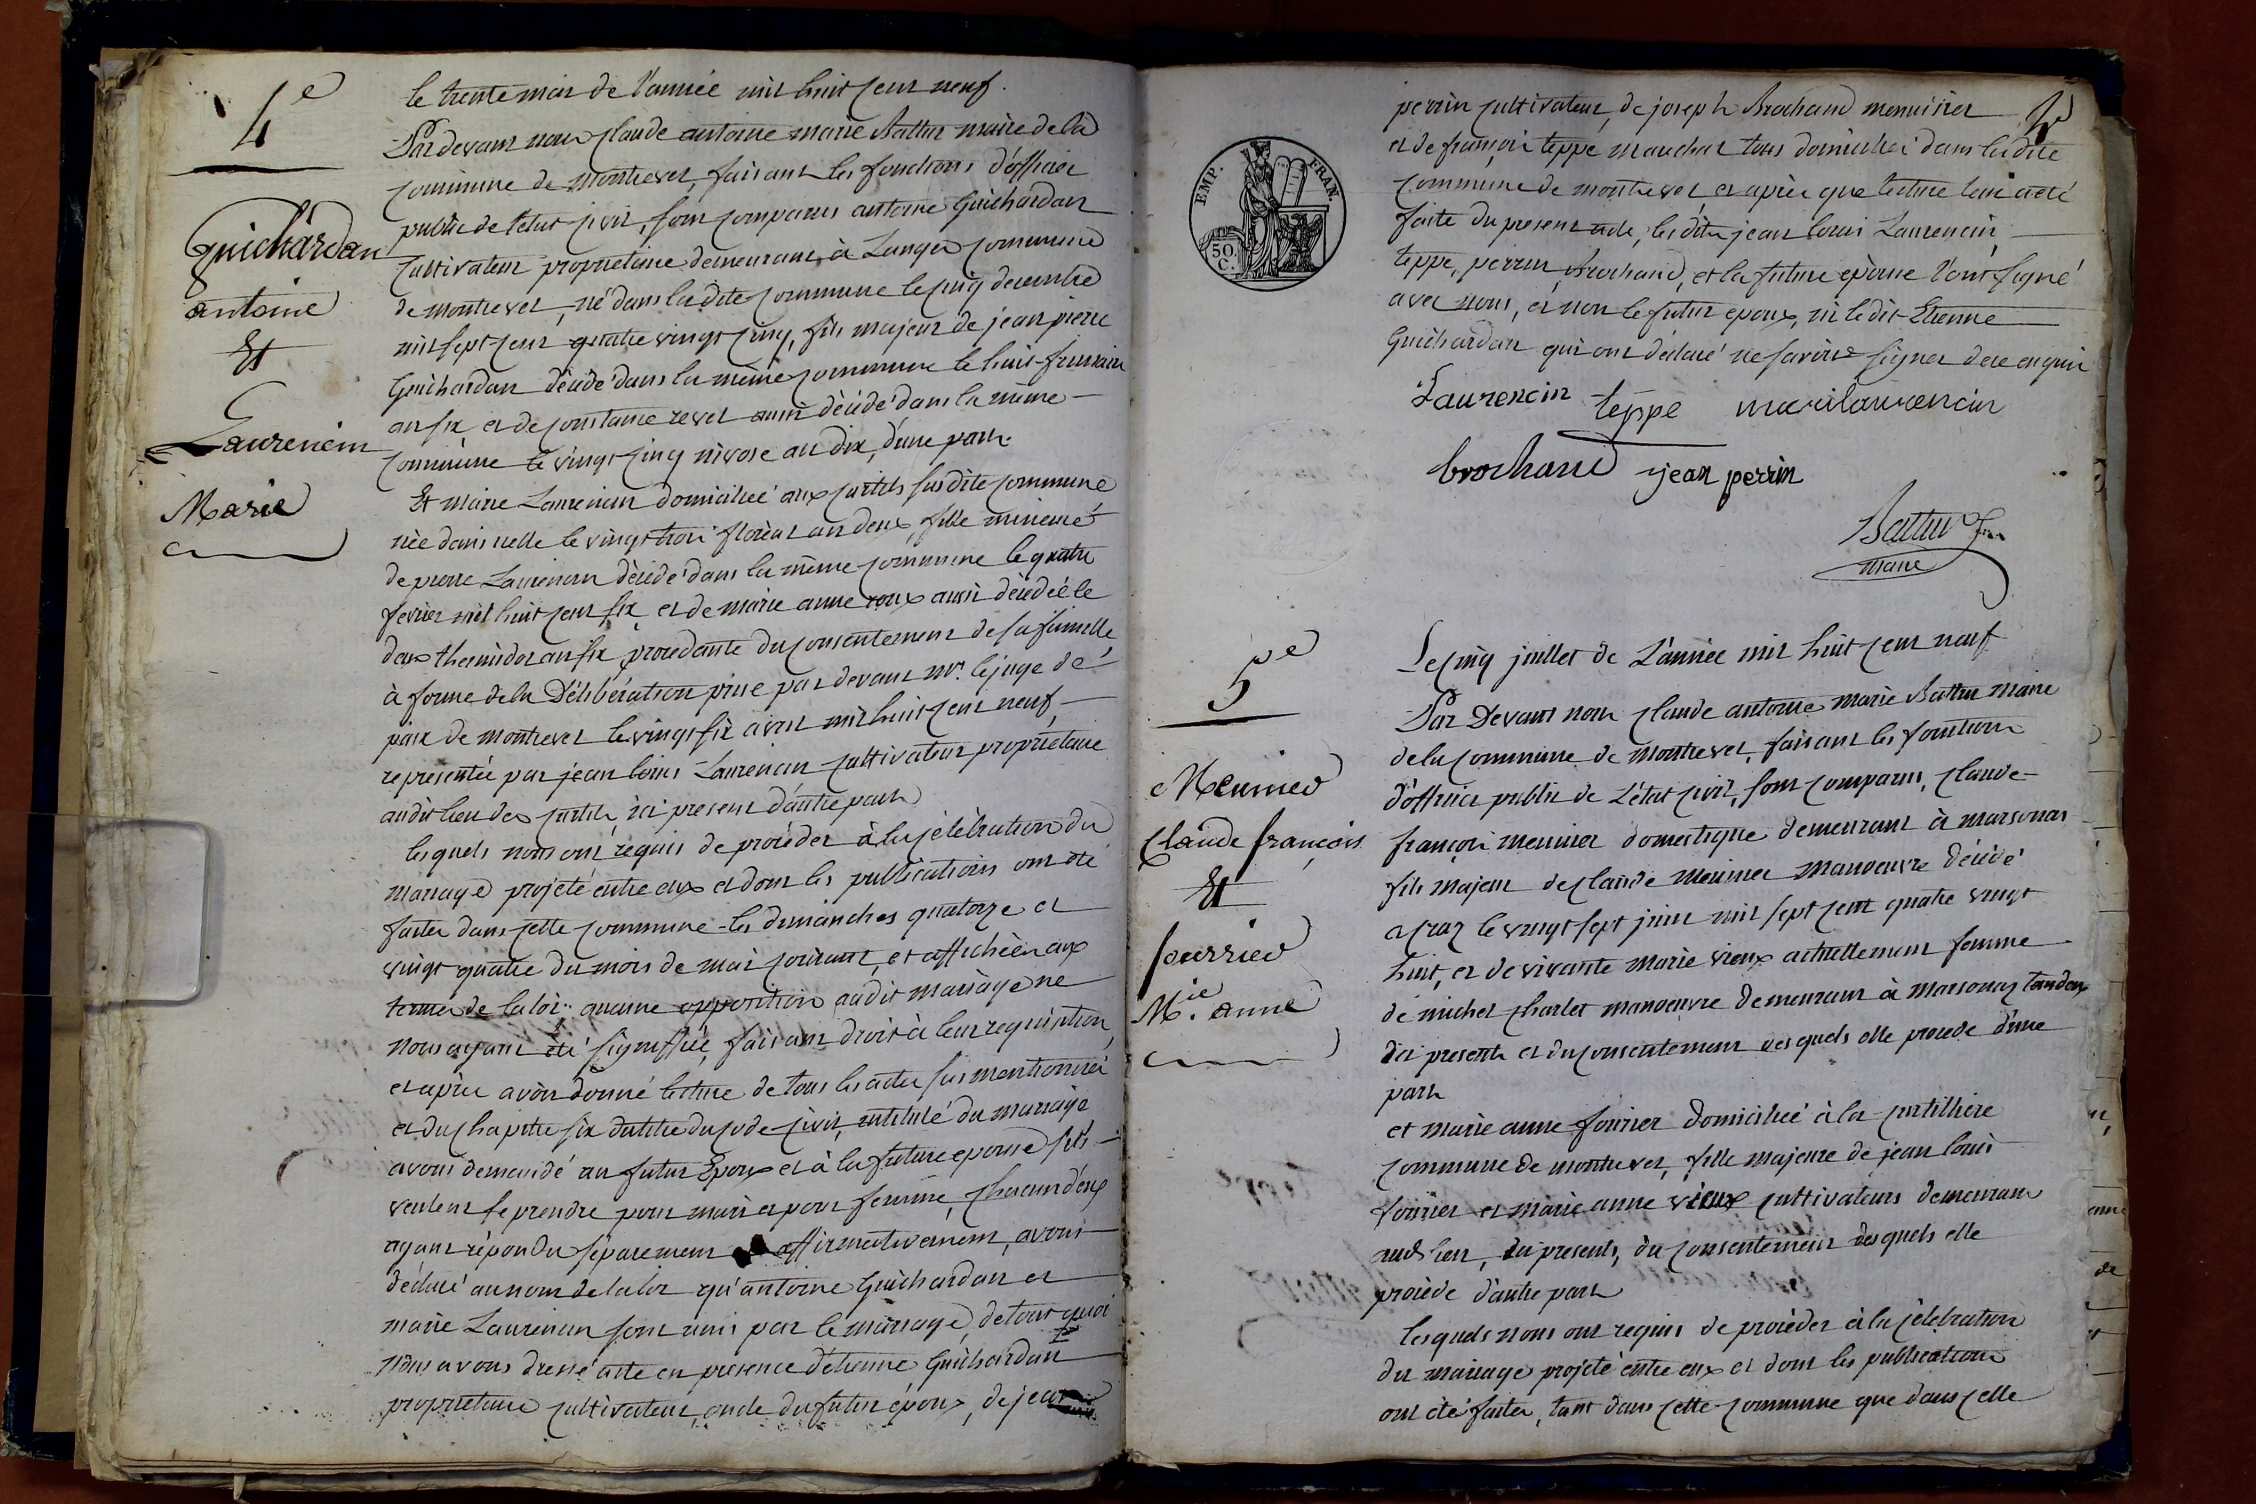 4e
Guichardan
antoine
Et
Laurencin
Marie
le trente mai de l'année mil huit cent neuf.
Par devant nous claude antoine marie Battur maire de la
commune de montrevel, faisant les fonctions d'officier
public de l'etat civil, sont comparus antoine Guichardan
cultivateur proprietaire demeurant à Langes commune
de montrevel, né dans la dite commune le cinq decembre
mil sept cent quatre vingt cinq, fils majeur de jean pierre
Guichardan décédé dans la même commune le huit frimaire
an six et de constance revel aussi décédé dans la même
commune le vingt cinq nivose an dix, d'une part.
Et marie Laurencin domiciliée aux curtils susdite commune
née dans icelle le vingt trois floréal an deux, fille mineure
de pierre Laurencin décédé dans la même commune le quatre
fevrier mil huit cent six et de marie anne roux aussi décédée le
deux thermidor an six, procedante du consentement de sa famille,
à forme de la Délibération prise par devant mr. le juge de
paix de montrevel le vingt six avril mil huit cent neuf,
representée par jean louis Laurencin cultivateur proprietaire
audit lieu des curtils, ici present d'autre part
lesquels nous ont requis de procéder à la célébration du
mariage projeté entre eux et dont les publications ont été
faites dans cette commune les dimanches quatorze et
vingt quatre du mois de mai courant, et affichées aux
termes de la loi. aucune opposition audit mariage ne
nous ayant été signiffiée, faisant droit à leur requisition,
et après avoir donné lecture de tous les actes sus mentionnés
et du chapitre six du titre du code civil, intitulé du mariage
avons demandé au futur Epoux et à la future epouse s'ils
veulent se prendre pour mari et pour femme, chacun d'eux
ayant répondu séparement affirmativement, avons
déclaré au nom de la loi qu'antoine Guichardan et
marie Laurencin sont unis par le mariage, de tout quoi
nous avons dressé acte en presence d'etienne Guichardan
proprietaire cultivateur, oncle du futur époux, de jean
EMP. FRAN.
50. C.
perrin cultivateur, de joseph Brochand menuisier
et de françois teppe marechal tous domiciliés dans la dite
commune de montrevel, et après que lecture leur a été
faite du present acte, les dits jean louis Laurencin,
teppe, perrin, Brochand, et la future epouse l'ont signé
avec nous, et non le futur epoux, ni le dit Etienne
Guichardan qui ont déclaré ne savoir signer de ce enquis
Laurencin teppe marilaurencin
brochand jean perrin
Battur
maire
5e
Meunier
Claude françois
Et
fourrier
Mie. anne
Le cinq juillet de L'année mil huit cent neuf
Par Devant nous claude antoine marie Battur maire
de la commune de montrevel, faisant les fonctions
d'officier public de L'état civil, sont comparus, claude
françois meunier domestique demeurant à marsonas
fils majeur de claude meunier manoeuvre décédé
a cras le vingt sept juin mil sept cent quatre vingt
huit, et de vivante marie vieux actuellement femme
de michel charlet manoeuvre demeurant à marsonas tous deux
ici presents et du consentement desquels elle procede d'une
part
et marie anne fourier domiciliée à la curtillière
commune de montrevel, fille majeure de jean louis
fourier et marie anne vieux cultivateurs demeurant
audit lieu, ici presents, du consentement desquels elle
procède d'autre part
lesquels nous ont requis de procéder à la célébration
du mariage projeté entre eux et dont les publications
ont été faites, tant dans cette commune que dans celle